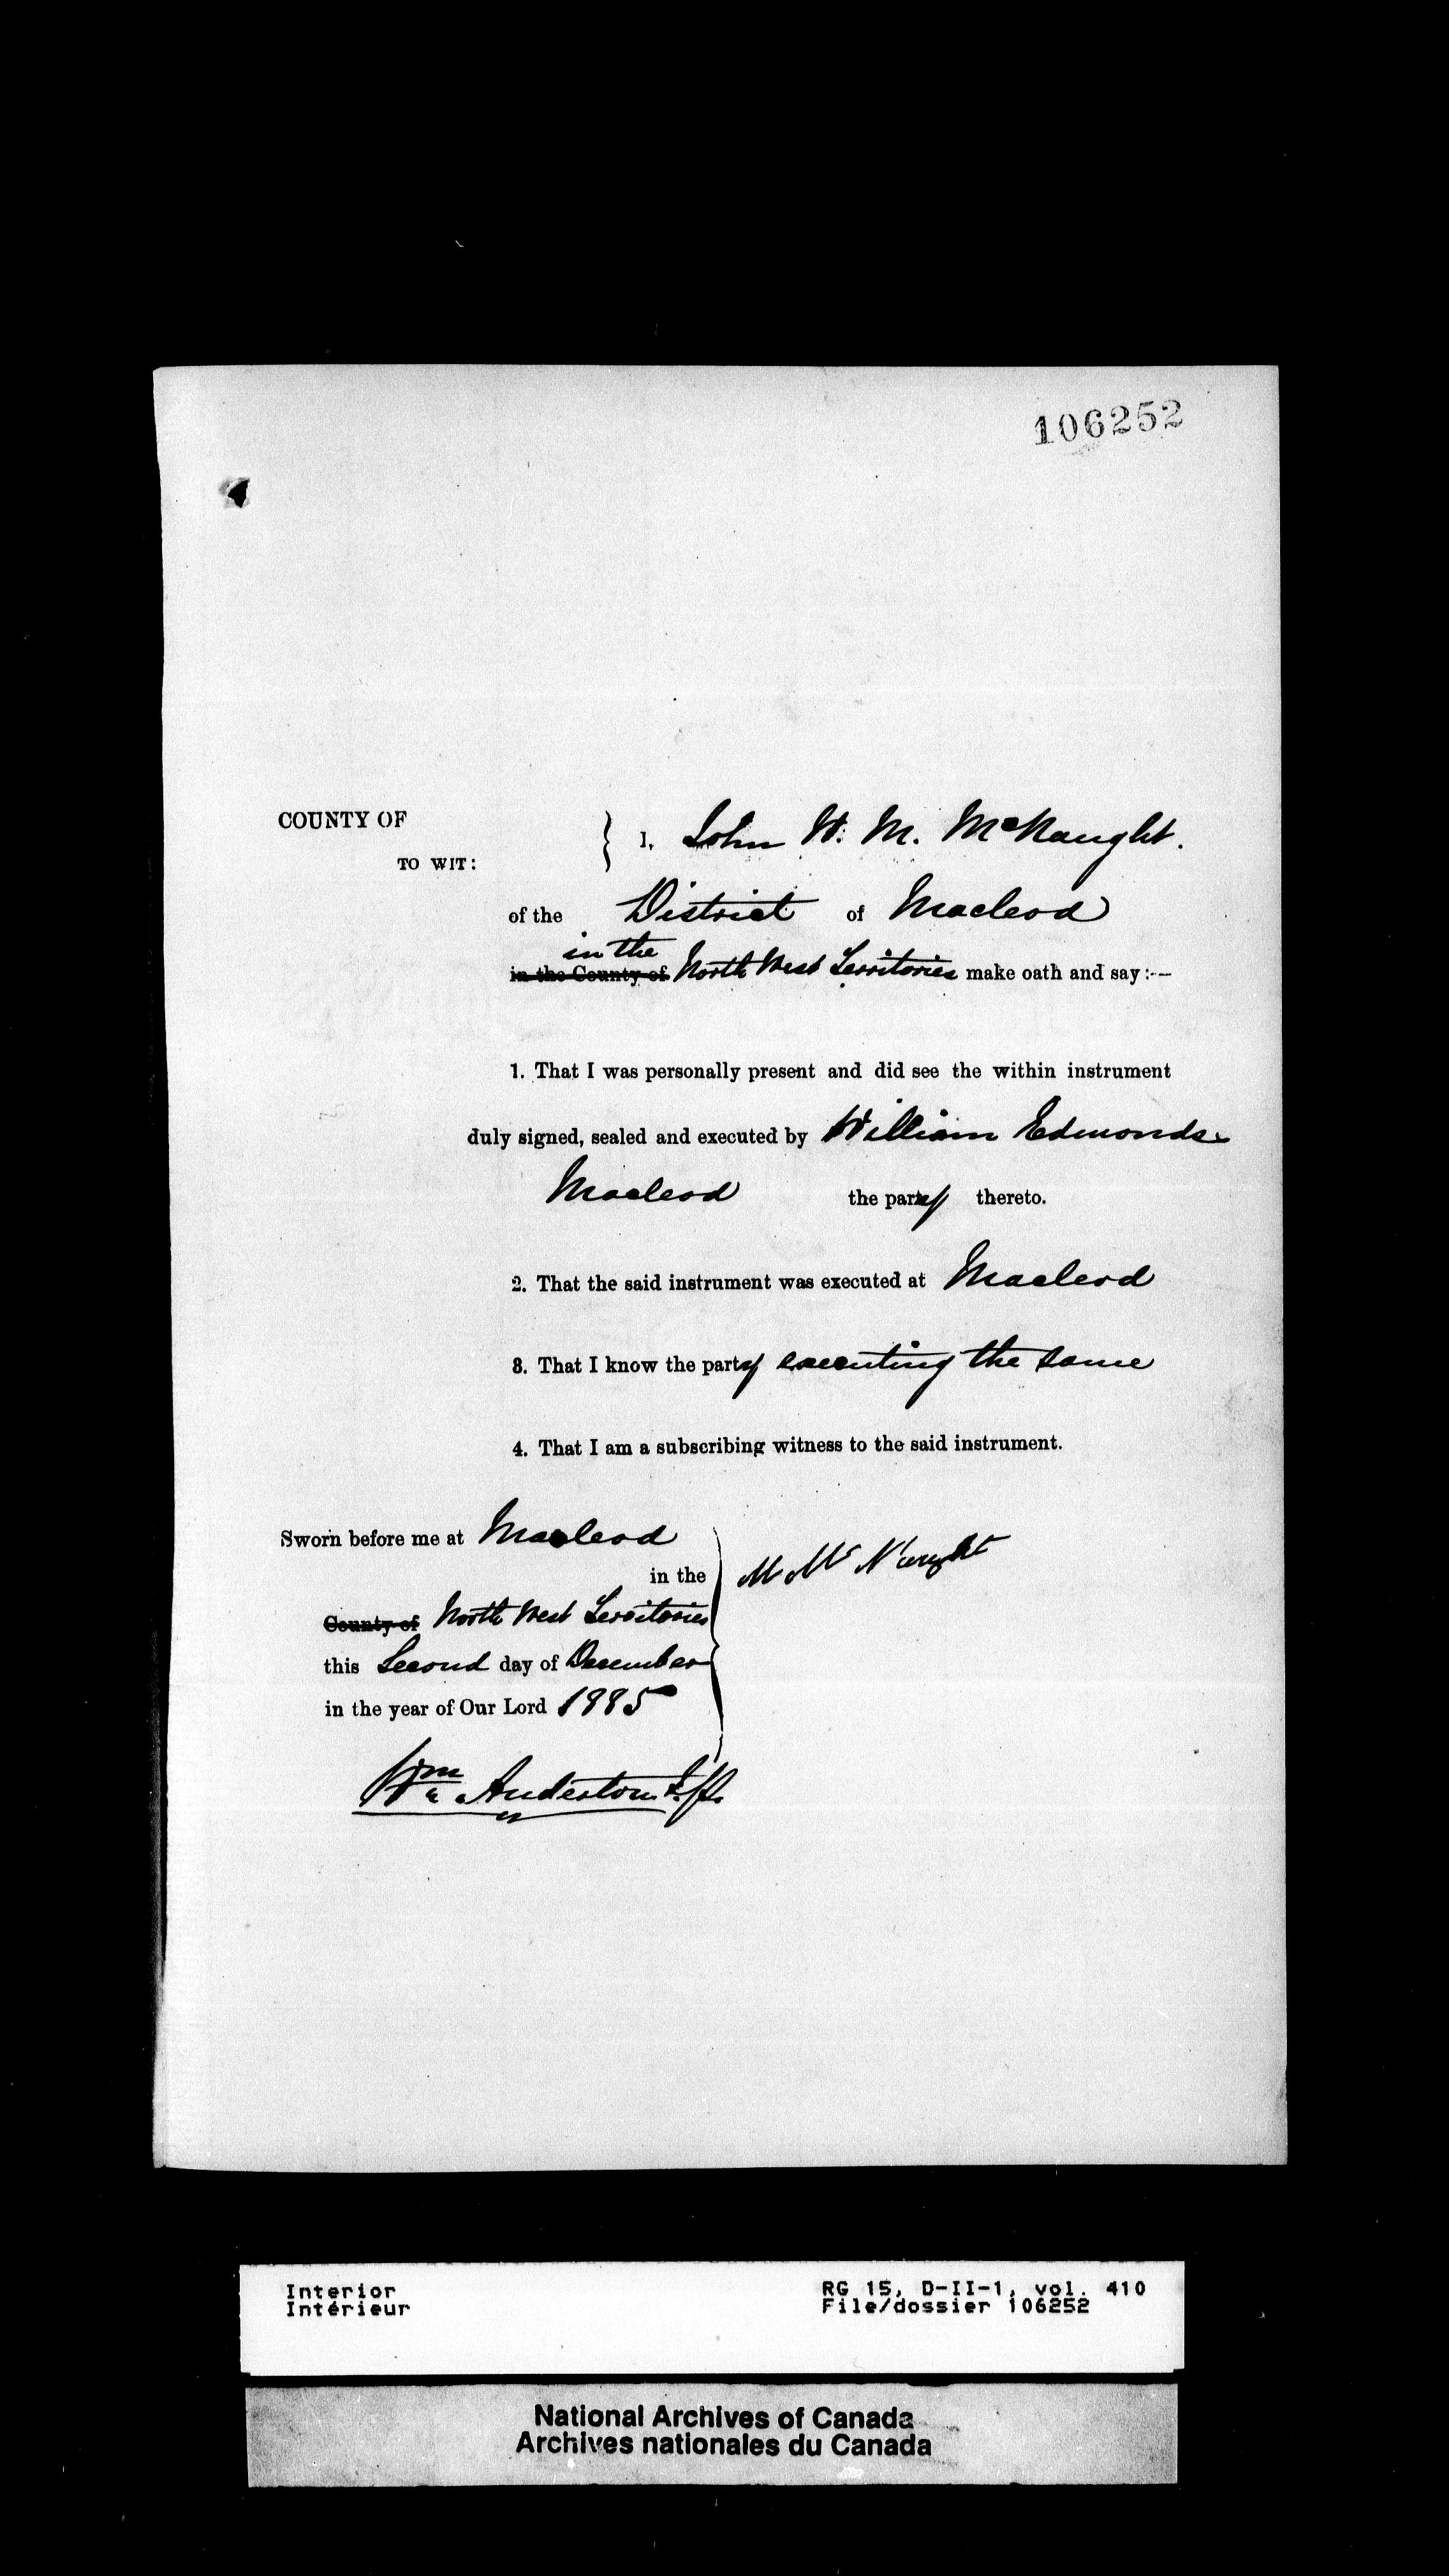 106252
COUNTY OF
TO WIT:
I, John W. M. McNaught.
of the District of Macleod
in the
in the County of North West Territories make oath and say:—
1. That I was personally present and did see the within instrument
duly signed, sealed and executed by William Edmonds
Macleod the party thereto.
2. That the said instrument was executed at Macleod
3. That I know the party executing the same
4. That I am a subscribing witness to the said instrument.
Sworn before me at Macleod
in the
County of North West Territories
this Second day of December
in the year of Our Lord 1885
M McNaught
Wm Anderton J.P.
Interior
Intérieur
RG 15, D-II-1, vol. 410
File/dossier 106252
National Archives of Canada
Archives nationales du Canada